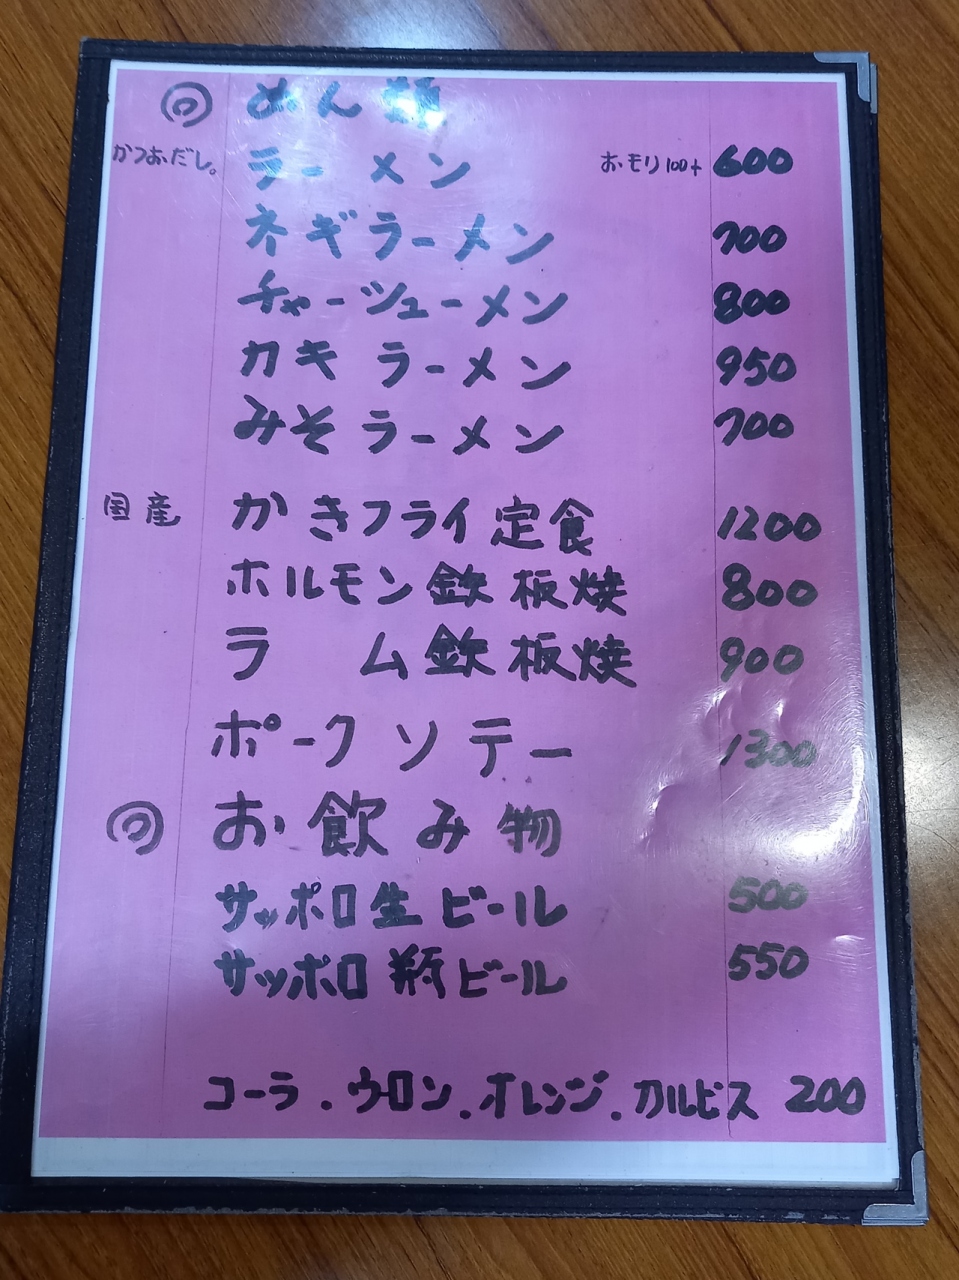 めん類
かつおだし。 ラーメン おーモリ100+ 600
ネギラーメン 700
チャーシューメン 800
カキラーメン 950
みそラーメン 700
国産 かきフライ定食 1200
ホルモン鉄板焼 800
ラム鉄板焼 900
ポークソテー 1300
お飲み物
サッポロ生ビール 500
サッポロ瓶ビール 550
コーラ.ウロン.オレンジ.カルピス 200